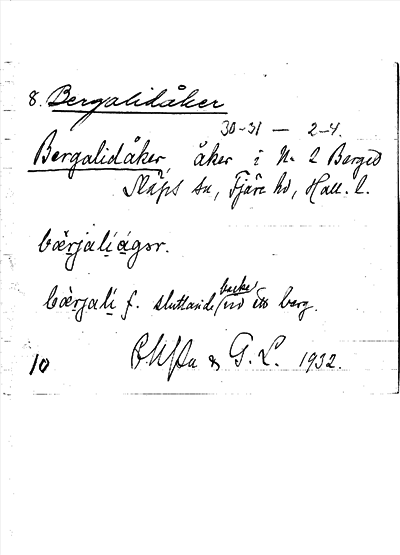 8. Bergalidåker
30-31 — 2-4.
Bergalidåker, åker i N. 2 Berged
Släps sn, Fjäre hd, Hall. l.
bærjalíágər.
bærjali f. sluttande backe vid ett berg.
10 & G. L. 1932.